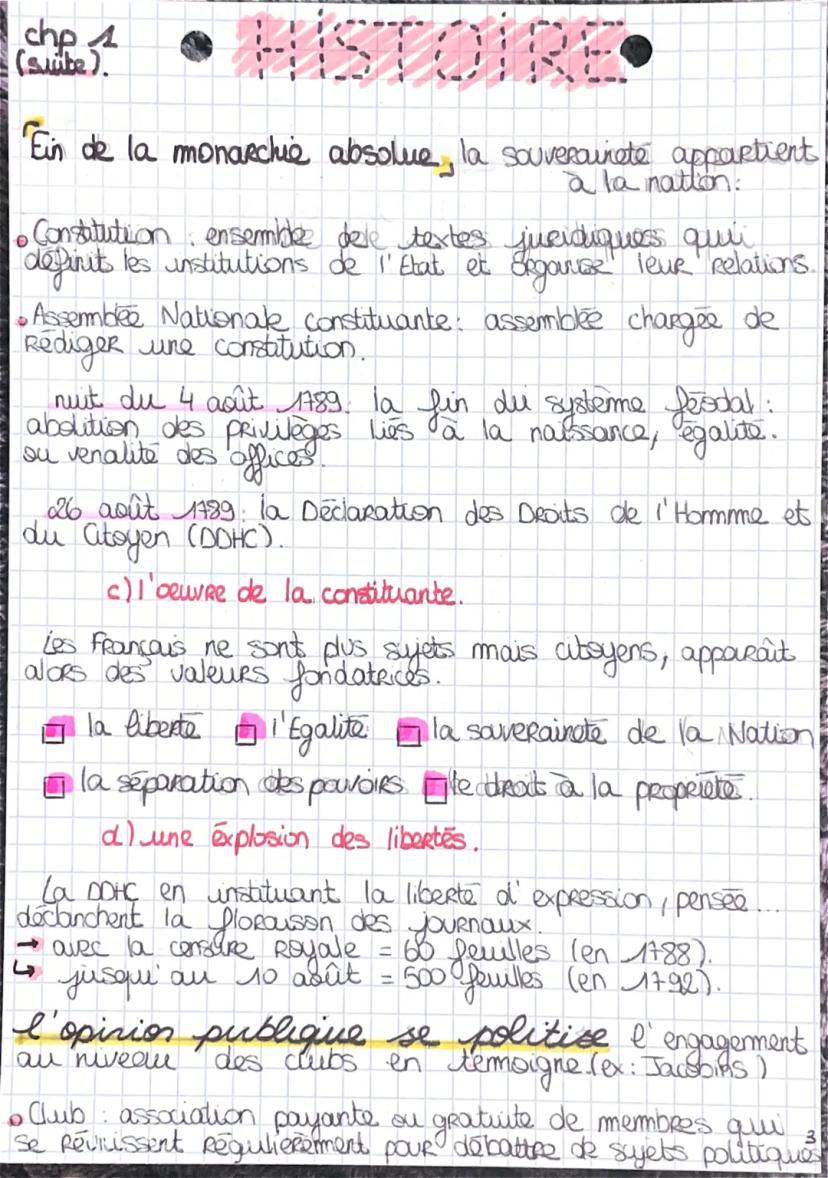 chp 1
(suite).
HISTOIRE
Fin de la monarchie absolue, la souveraineté appartient
à la nation:
Constitution : ensemble de textes juridiques qui
définits les institutions de l'Etat et organise leur relations.
Assemblée Nationale constituante: assemblée chargée de
rédiger une constitution.
nuit du 4 août 1789: la fin du système féodal :
abolition des privilèges liés à la naissance, égalité.
ou venalité des offices.
26 août 1789: la Déclaration des Droits de l'Homme et
du Citoyen (DDHC).
c) l'oeuvre de la constituante.
Les Français ne sont plus sujets mais citoyens, apparaît
alors des valeurs fondatrices.
la liberté l'Egalité la souveraineté de la Nation
la séparation des pouvoirs le droit à la propriété.
d) une éxplosion des libertés.
La DDHC en instituant la liberté d'expression, pensée...
déclanchent la floraison des journaux.
→ avec la censure royale = 60 feuilles (en 1788).
↳ jusqu'au 10 août = 500 feuilles (en 1792).
l'opinion publique se politise l'engagement
au niveau des clubs en témoigne.(ex: Jacobins)
Club : association payante ou gratuite de membres qui
se réunissent régulièrement pour débattre de sujets politiques
3